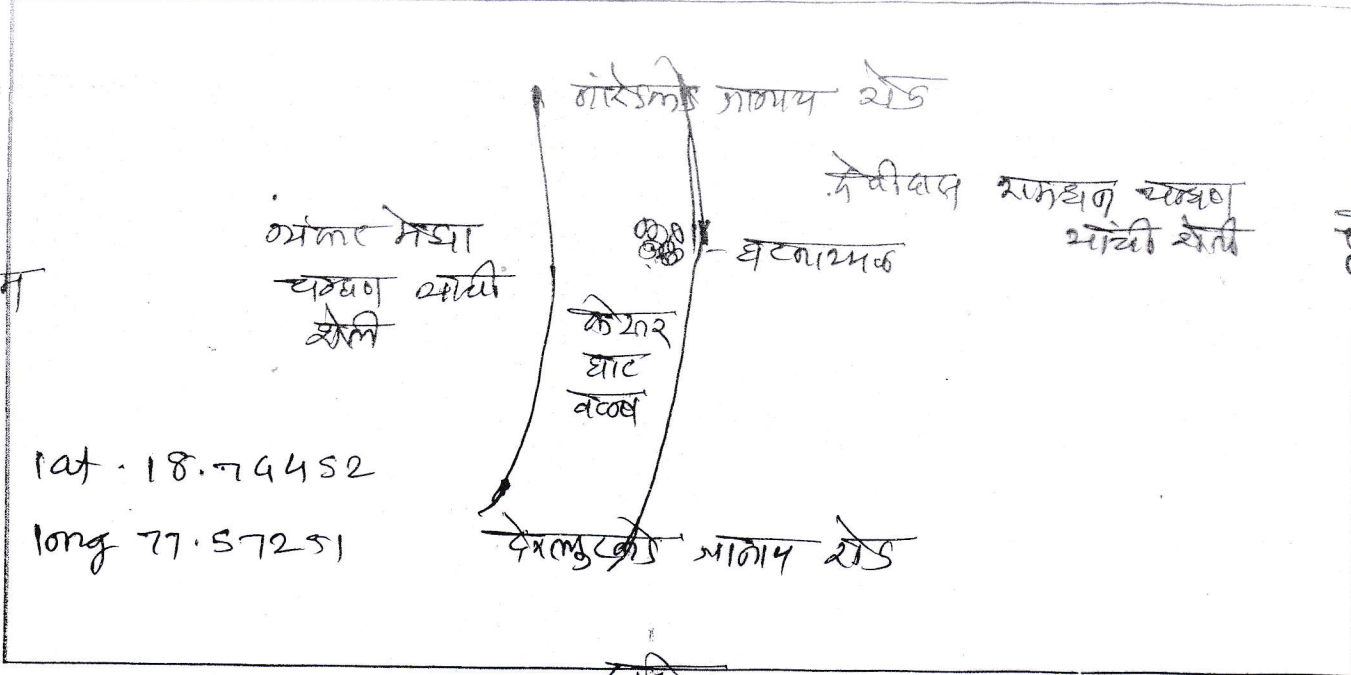 नांदेडकडे जाणारा रोड
देवीदास रामधन चव्हाण
यांची शेती
व्यंकट मेघा
चव्हाण यांची
शेती
घटनास्थळ
केदार
घाट
वळण
lat . 18.74452
long 77.57251
देगलूरकडे जाणारा रोड